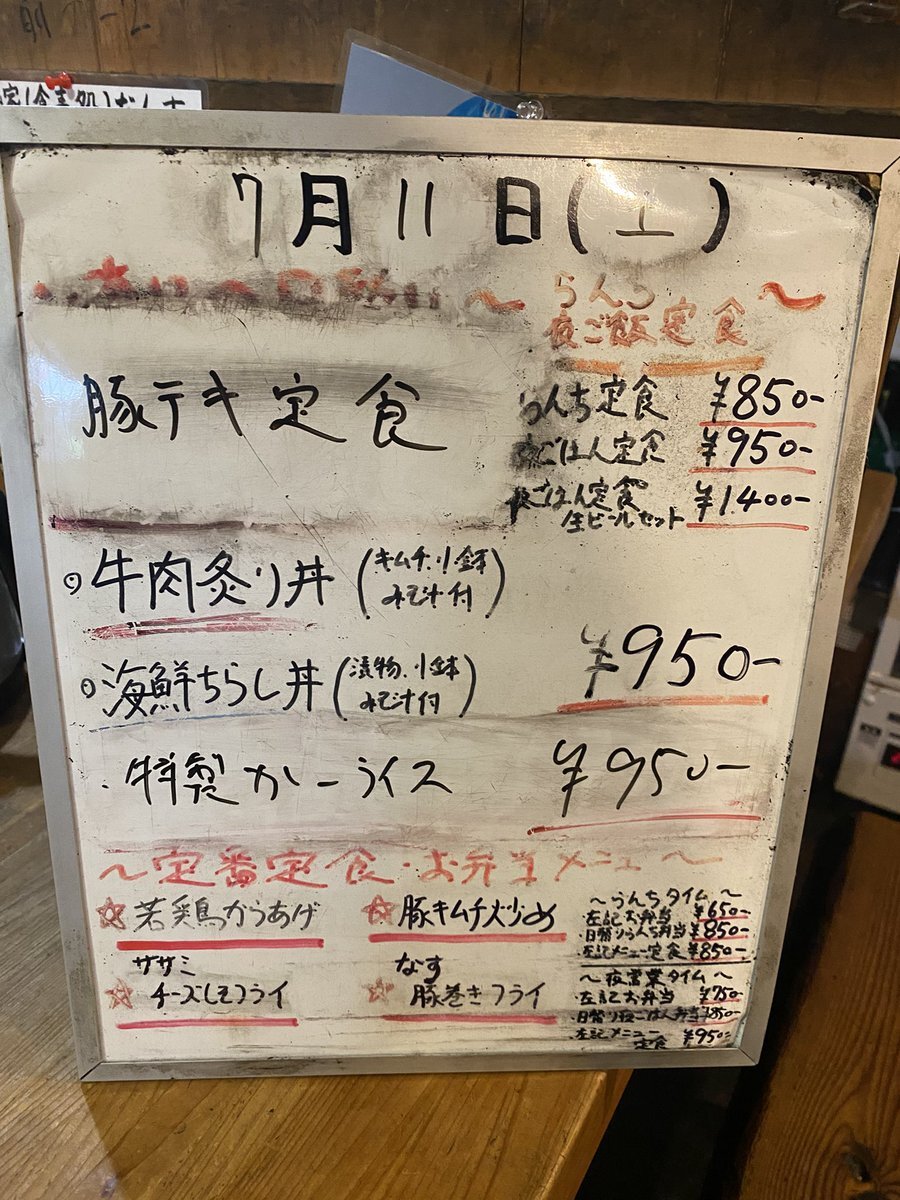 7月11日(土)
～らんち
夜ご飯定食～
豚テキ定食
らんち定食 ¥850-
夜ごはん定食 ¥950-
夜ごはん定食
生ビールセット ¥1.400-
牛肉炙り丼(キムチ、小鉢
みそ汁付)
海鮮ちらし丼(漬物、小鉢
みそ汁付) ¥950-
・特製カーライス ¥950-
～定番定食・お弁当メニュー～
☆若鶏からあげ
☆豚キムチ炒め
ササミ
☆チーズしそフライ
なす
☆豚巻きフライ
～らんちタイム～
左記お弁当 ¥650-
・日替りらんち弁当 ¥850-
左記メニュー定食 ¥850-
～夜営業タイム～
・左記お弁当 ¥750-
・日替り夜ごはん弁当 ¥850-
・左記メニュー
定食 ¥950-